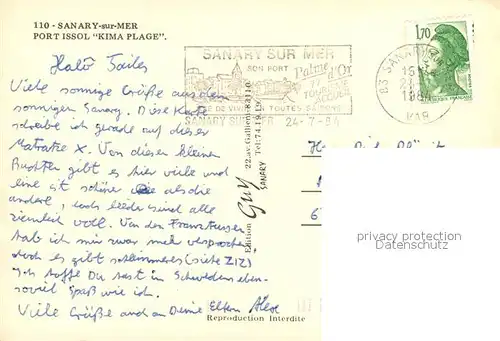 110 - SANARY-sur-MER
PORT ISSOL "KIMA PLAGE".
SANARY SUR MER
SON PORT
Palme d'Or
TOURISME
JOIE DE VIVRE TOUTES SAISONS
SANARY SUR MER 24-7-84
83 SANARY
VAR
1,70
Hallo
Viele sonnige Grüße aus dem
sonnigen Sanary. Diese Karte
schreibe ich gerade auf dieser
Matratze X. Von diesen kleinen
Buchten gibt es hier viele und
eine ist schöner als die
andere, doch leider sind alle
ziemlich voll. Von den Franzosen
hab ich mir zwar mehr versprochen
doch es gibt schlimmeres (siehe ZIZ)
Ich hoffe Du hast in Schweden eben-
soviel Spaß wie ich.
Viele Grüße auch an Deine Eltern Alex
Edition Guy
SANARY
22, av. Gallieni
Tél: 74.19.
Reproduction Interdite
privacy protection
Datenschutz